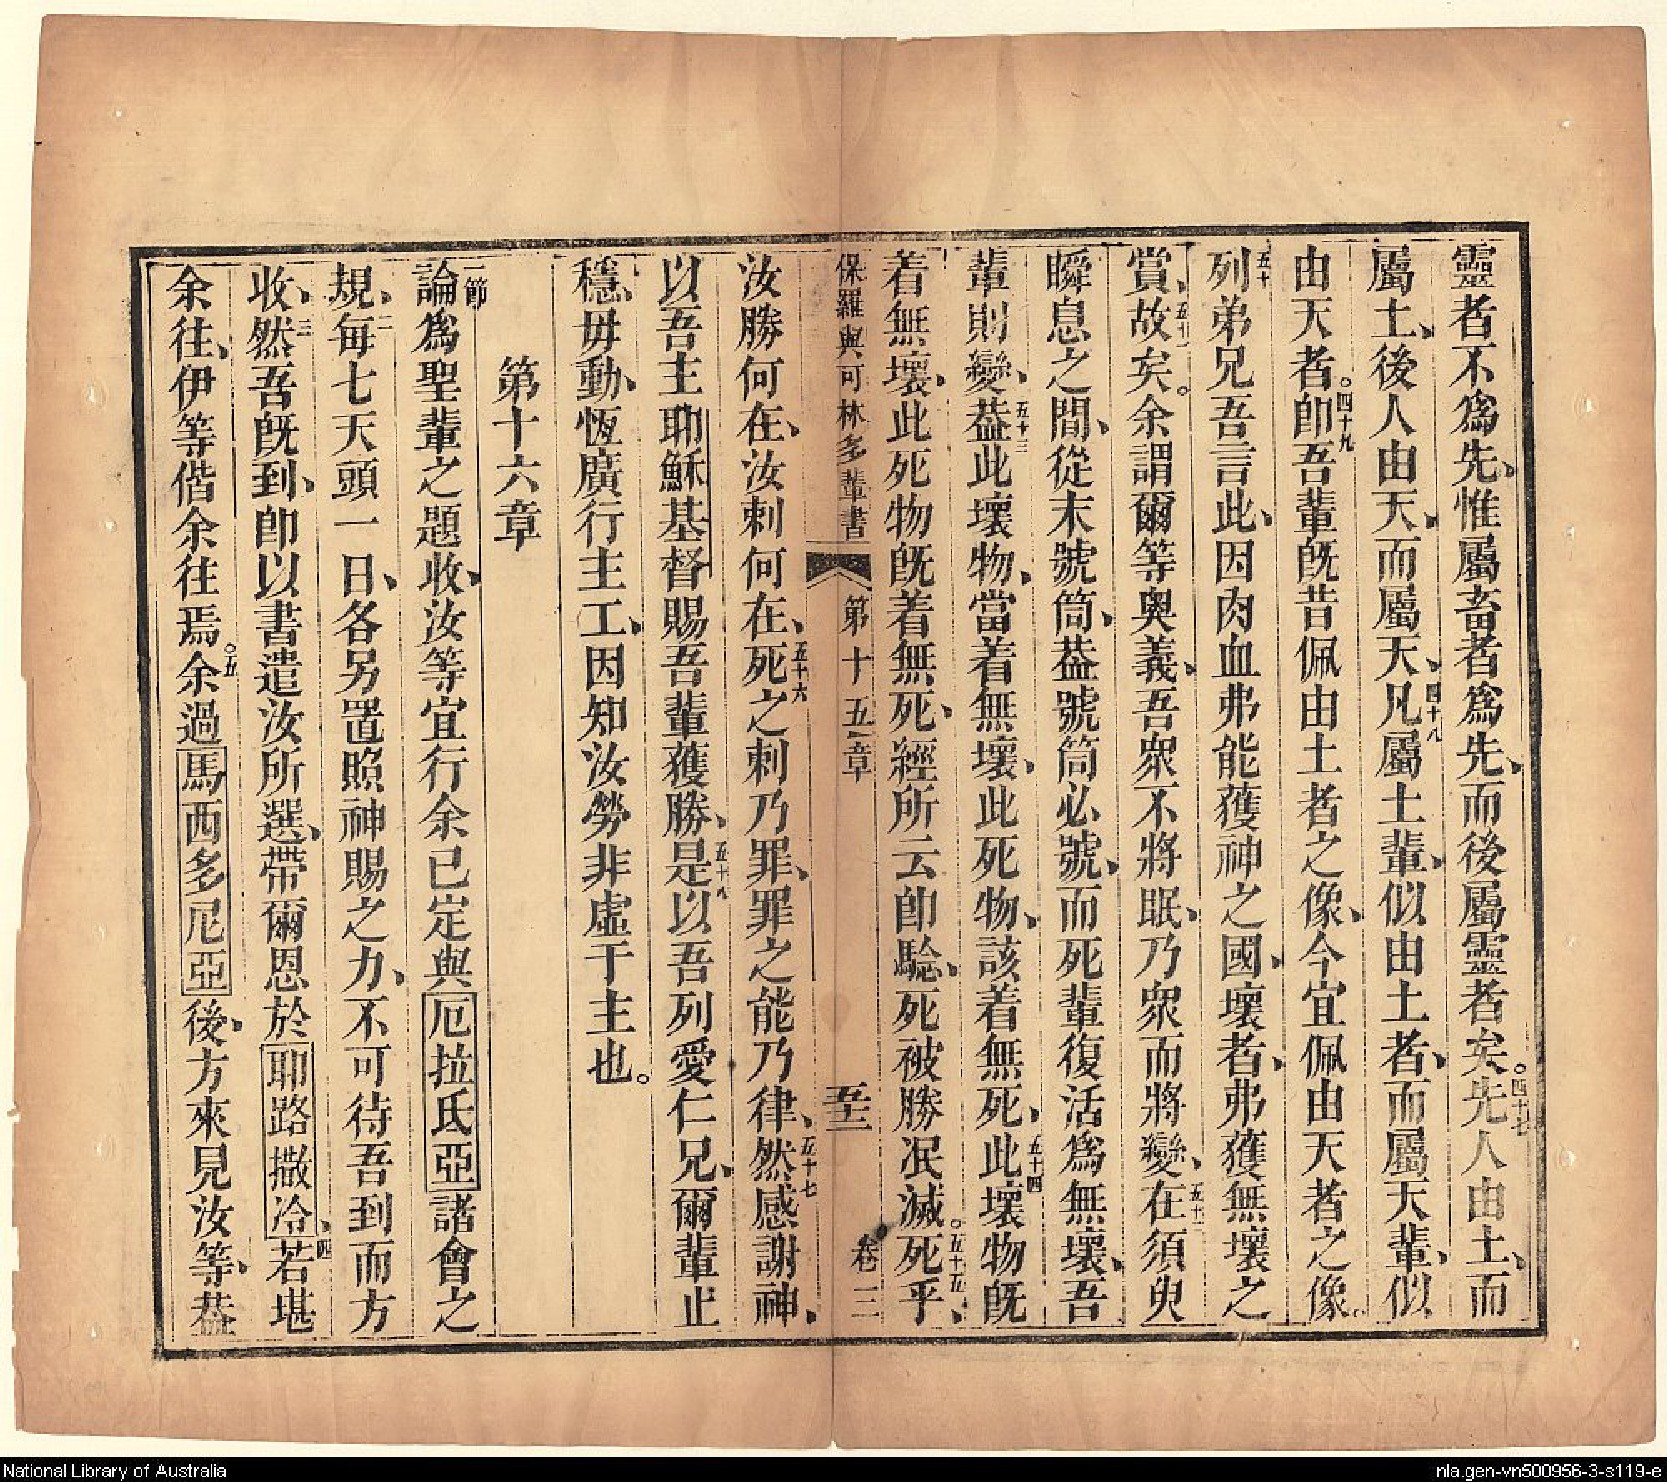 靈者不爲先、惟屬畜者爲先、而後屬靈者矣。四十七先人由土、而
屬土、後人由天、而屬天、四十八凡屬土輩、似由土者、而屬天輩、似
由天者。四十九卽吾輩旣昔佩由土者之像、今宜佩由天者之像。
五十列弟兄吾言此、因肉血弗能獲神之國、壞者、弗獲無壞之
賞、五十一故矣。余謂爾等奧義、吾衆不將眠、乃衆而將變、五十二在須臾
瞬息之間、從末號筒、葢號筒必號、而死輩復活爲無壞、吾
輩則變、五十三葢此壞物、當着無壞、此死物、該着無死、五十四此壞物旣
着無壞、此死物旣着無死、經所云卽騐、死被勝泯滅。五十五死乎、
保羅與可林多輩書 第十五章 五十三 卷三
汝勝何在、汝刺何在、五十六死之刺乃罪、罪之能乃律、五十七然感謝神、
以吾主耶穌基督賜吾輩獲勝、五十八是以吾列愛仁兄、爾輩止
穩、毋動、恆廣行主工、因知汝勞非虛于主也。
第十六章
一節論爲聖輩之題收、汝等宜行余已定與厄拉氐亞諸會之
規、二每七天頭一日、各另置照神賜之力、不可待吾到而方
收、三然吾旣到、卽以書遣汝所選、帶爾恩於耶路撒冷、四若堪
余往、伊等偕余往焉。五余過馬西多尼亞後、方來見汝等、葢
National Library of Australia
nla.gen-vn500956-3-s119-e